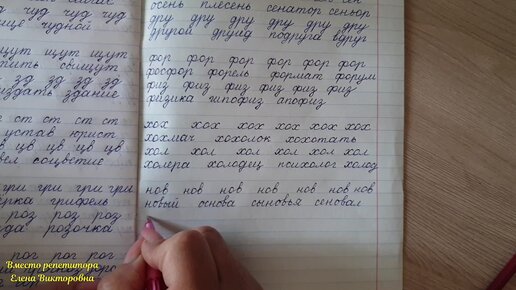 чуд чуд чуд
чудной
щут щут щут
зд зд зд зд
здание
ст ст ст ст
устав юрист
цв цв цв цв
соцветие
гри гри гри гри
грифель
роз роз роз
розочка
рог рог рог
осень плесень сенатор сеньор
дру дру дру дру дру дру
другой друид подруга вдруг
фор фор фор фор фор фор
фосфор форель формат форум
физ физ физ физ физ физ
физика гипофиз апофиз
хох хох хох хох хох хох
хохмач хохолок хохотать
хол хол хол хол хол хол
холера холодец психолог холод
нов нов нов нов нов нов нов
новый основа сыновья сеновал
Вместо репетитора
Елена Викторовна